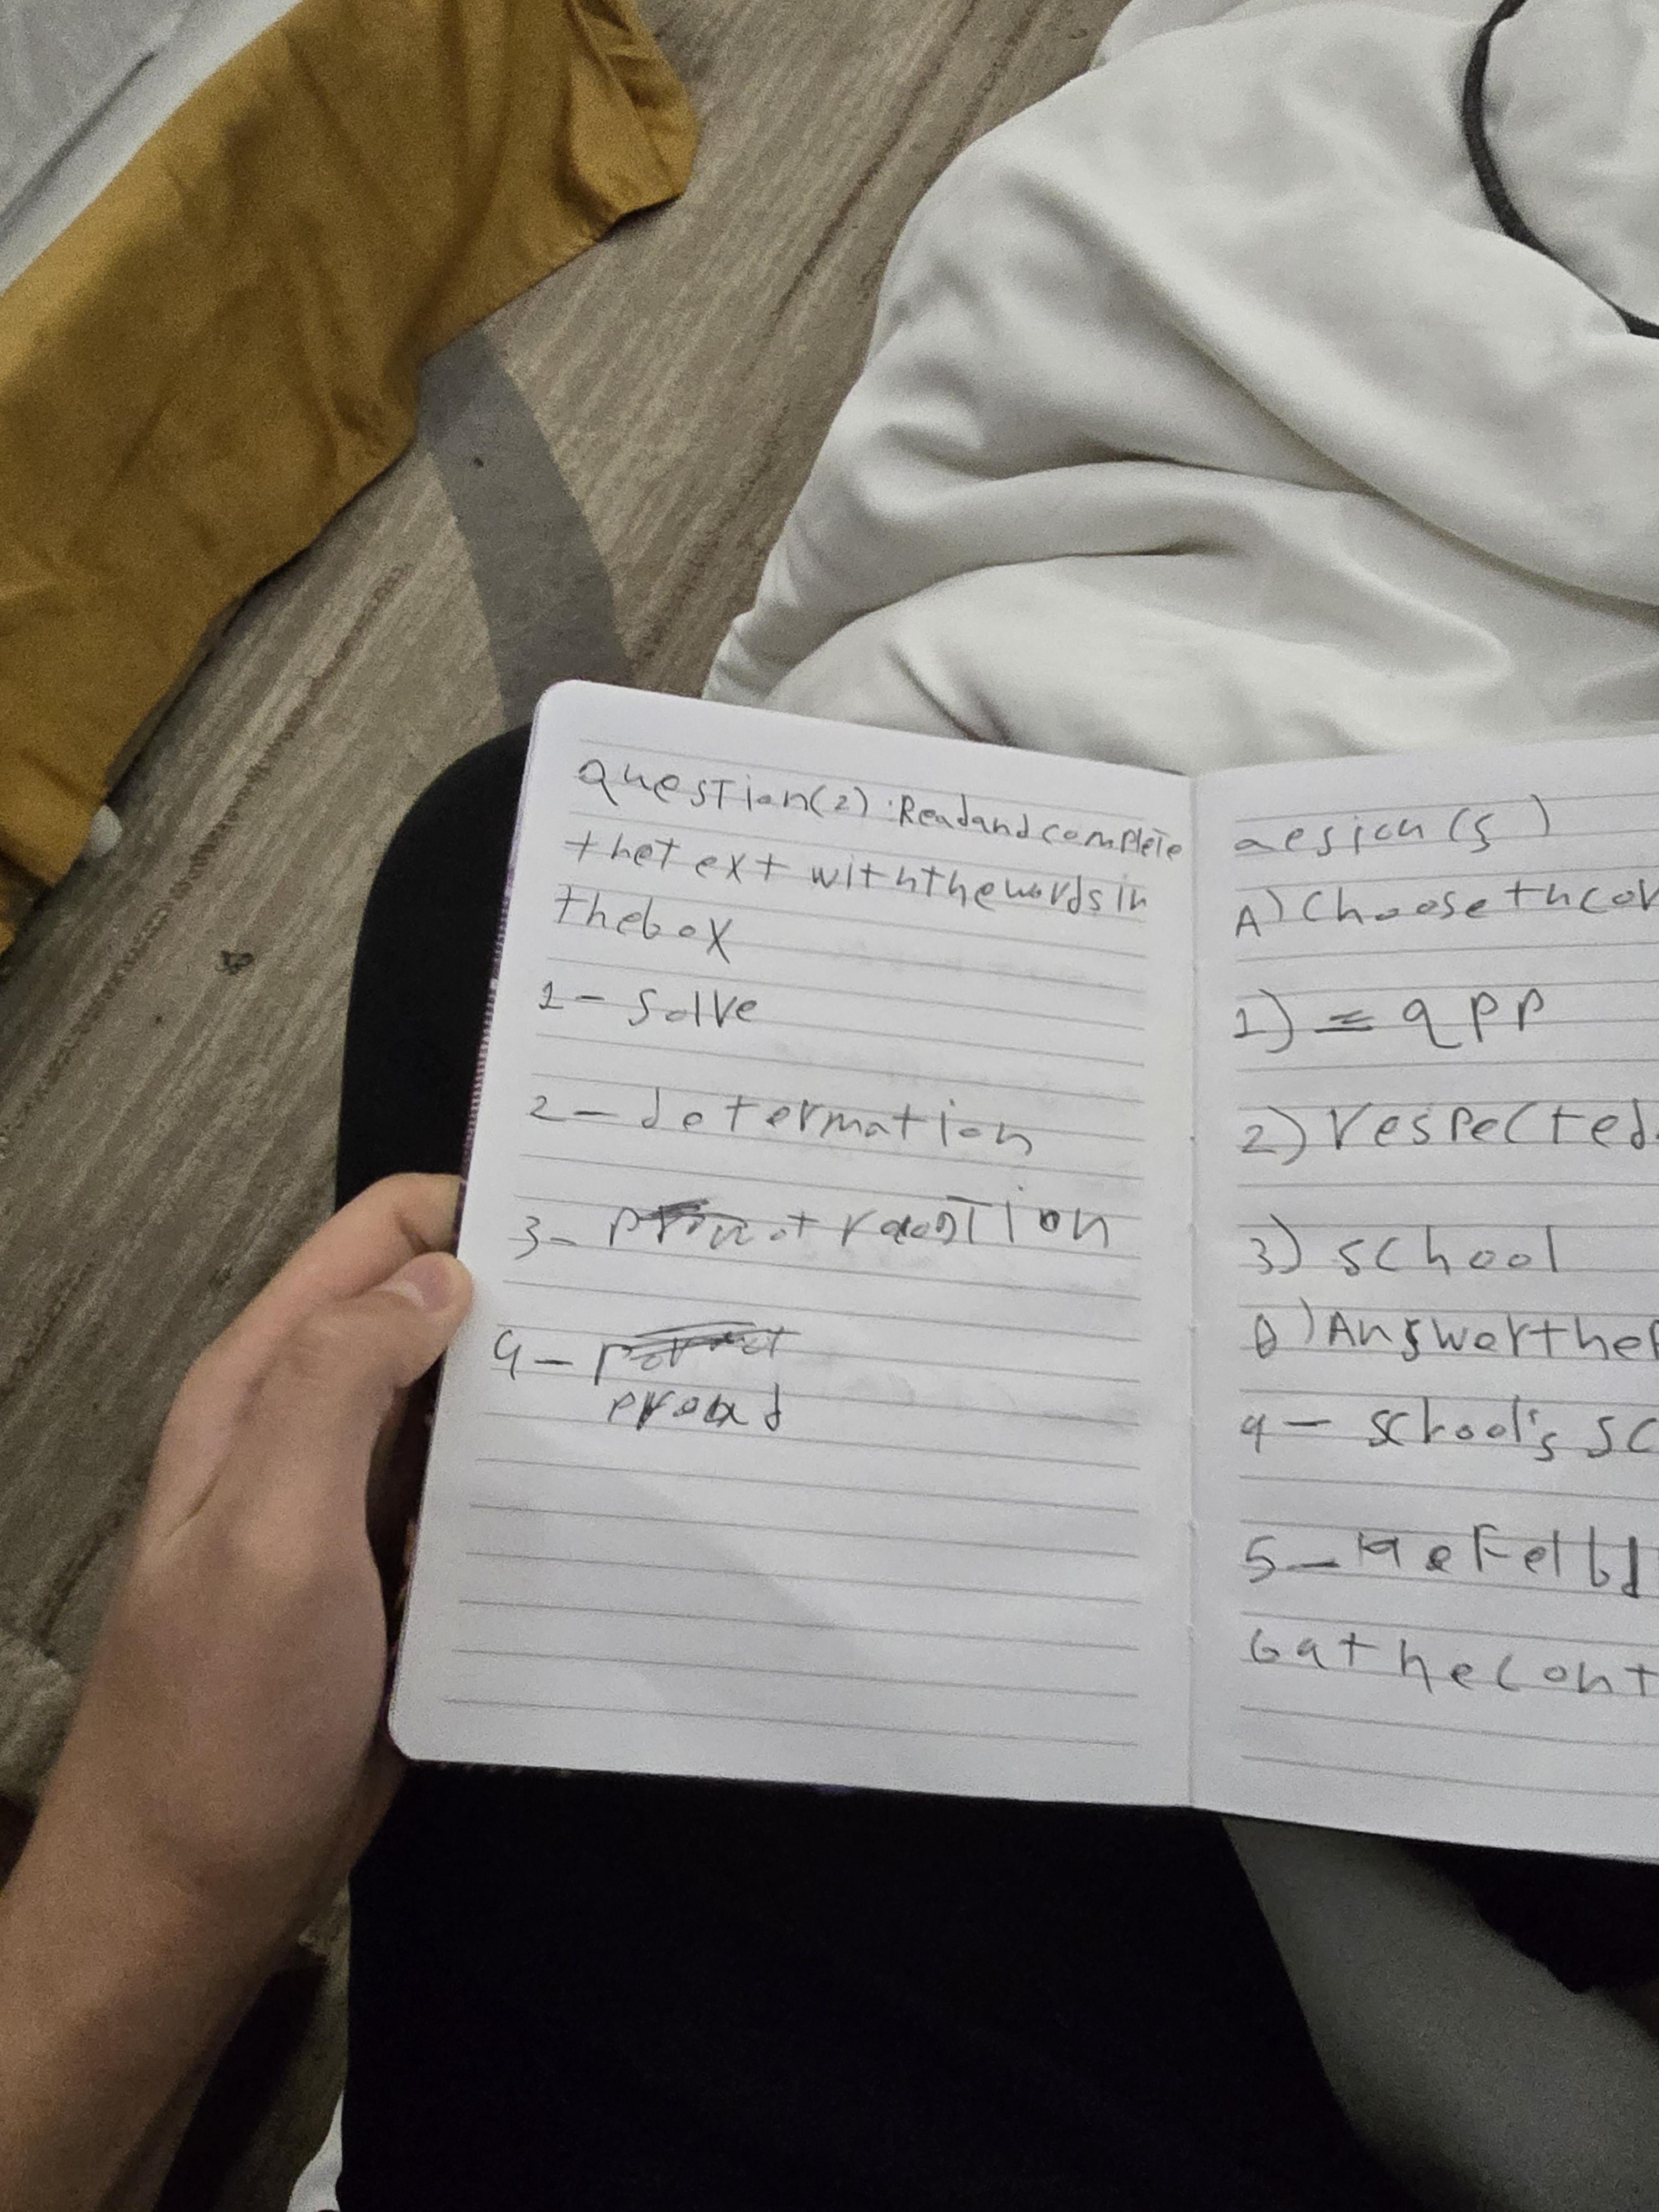 question(2): Read and complete
the text with the words in
the box
1- solve
2- determation
3-
4-
proud
A) Choose the cor
1) = app
2) respected
3) school
Answer the
4- school's sc
5- He felt
6 at he cont